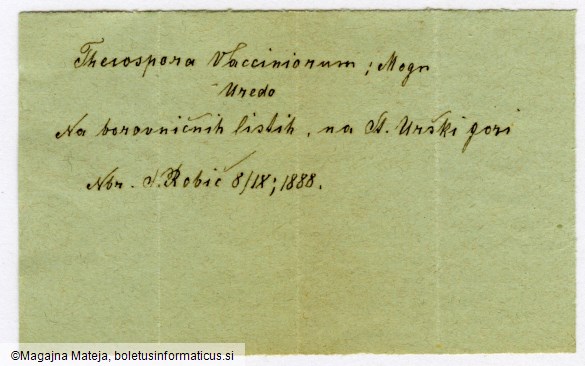 Thecospora Vacciniorum; Magn
Uredo
Na borovničnih listih, na St. Urški gori
Nbr. S. Robič 8/IX; 1888.
©Magajna Mateja, boletusinformaticus.si